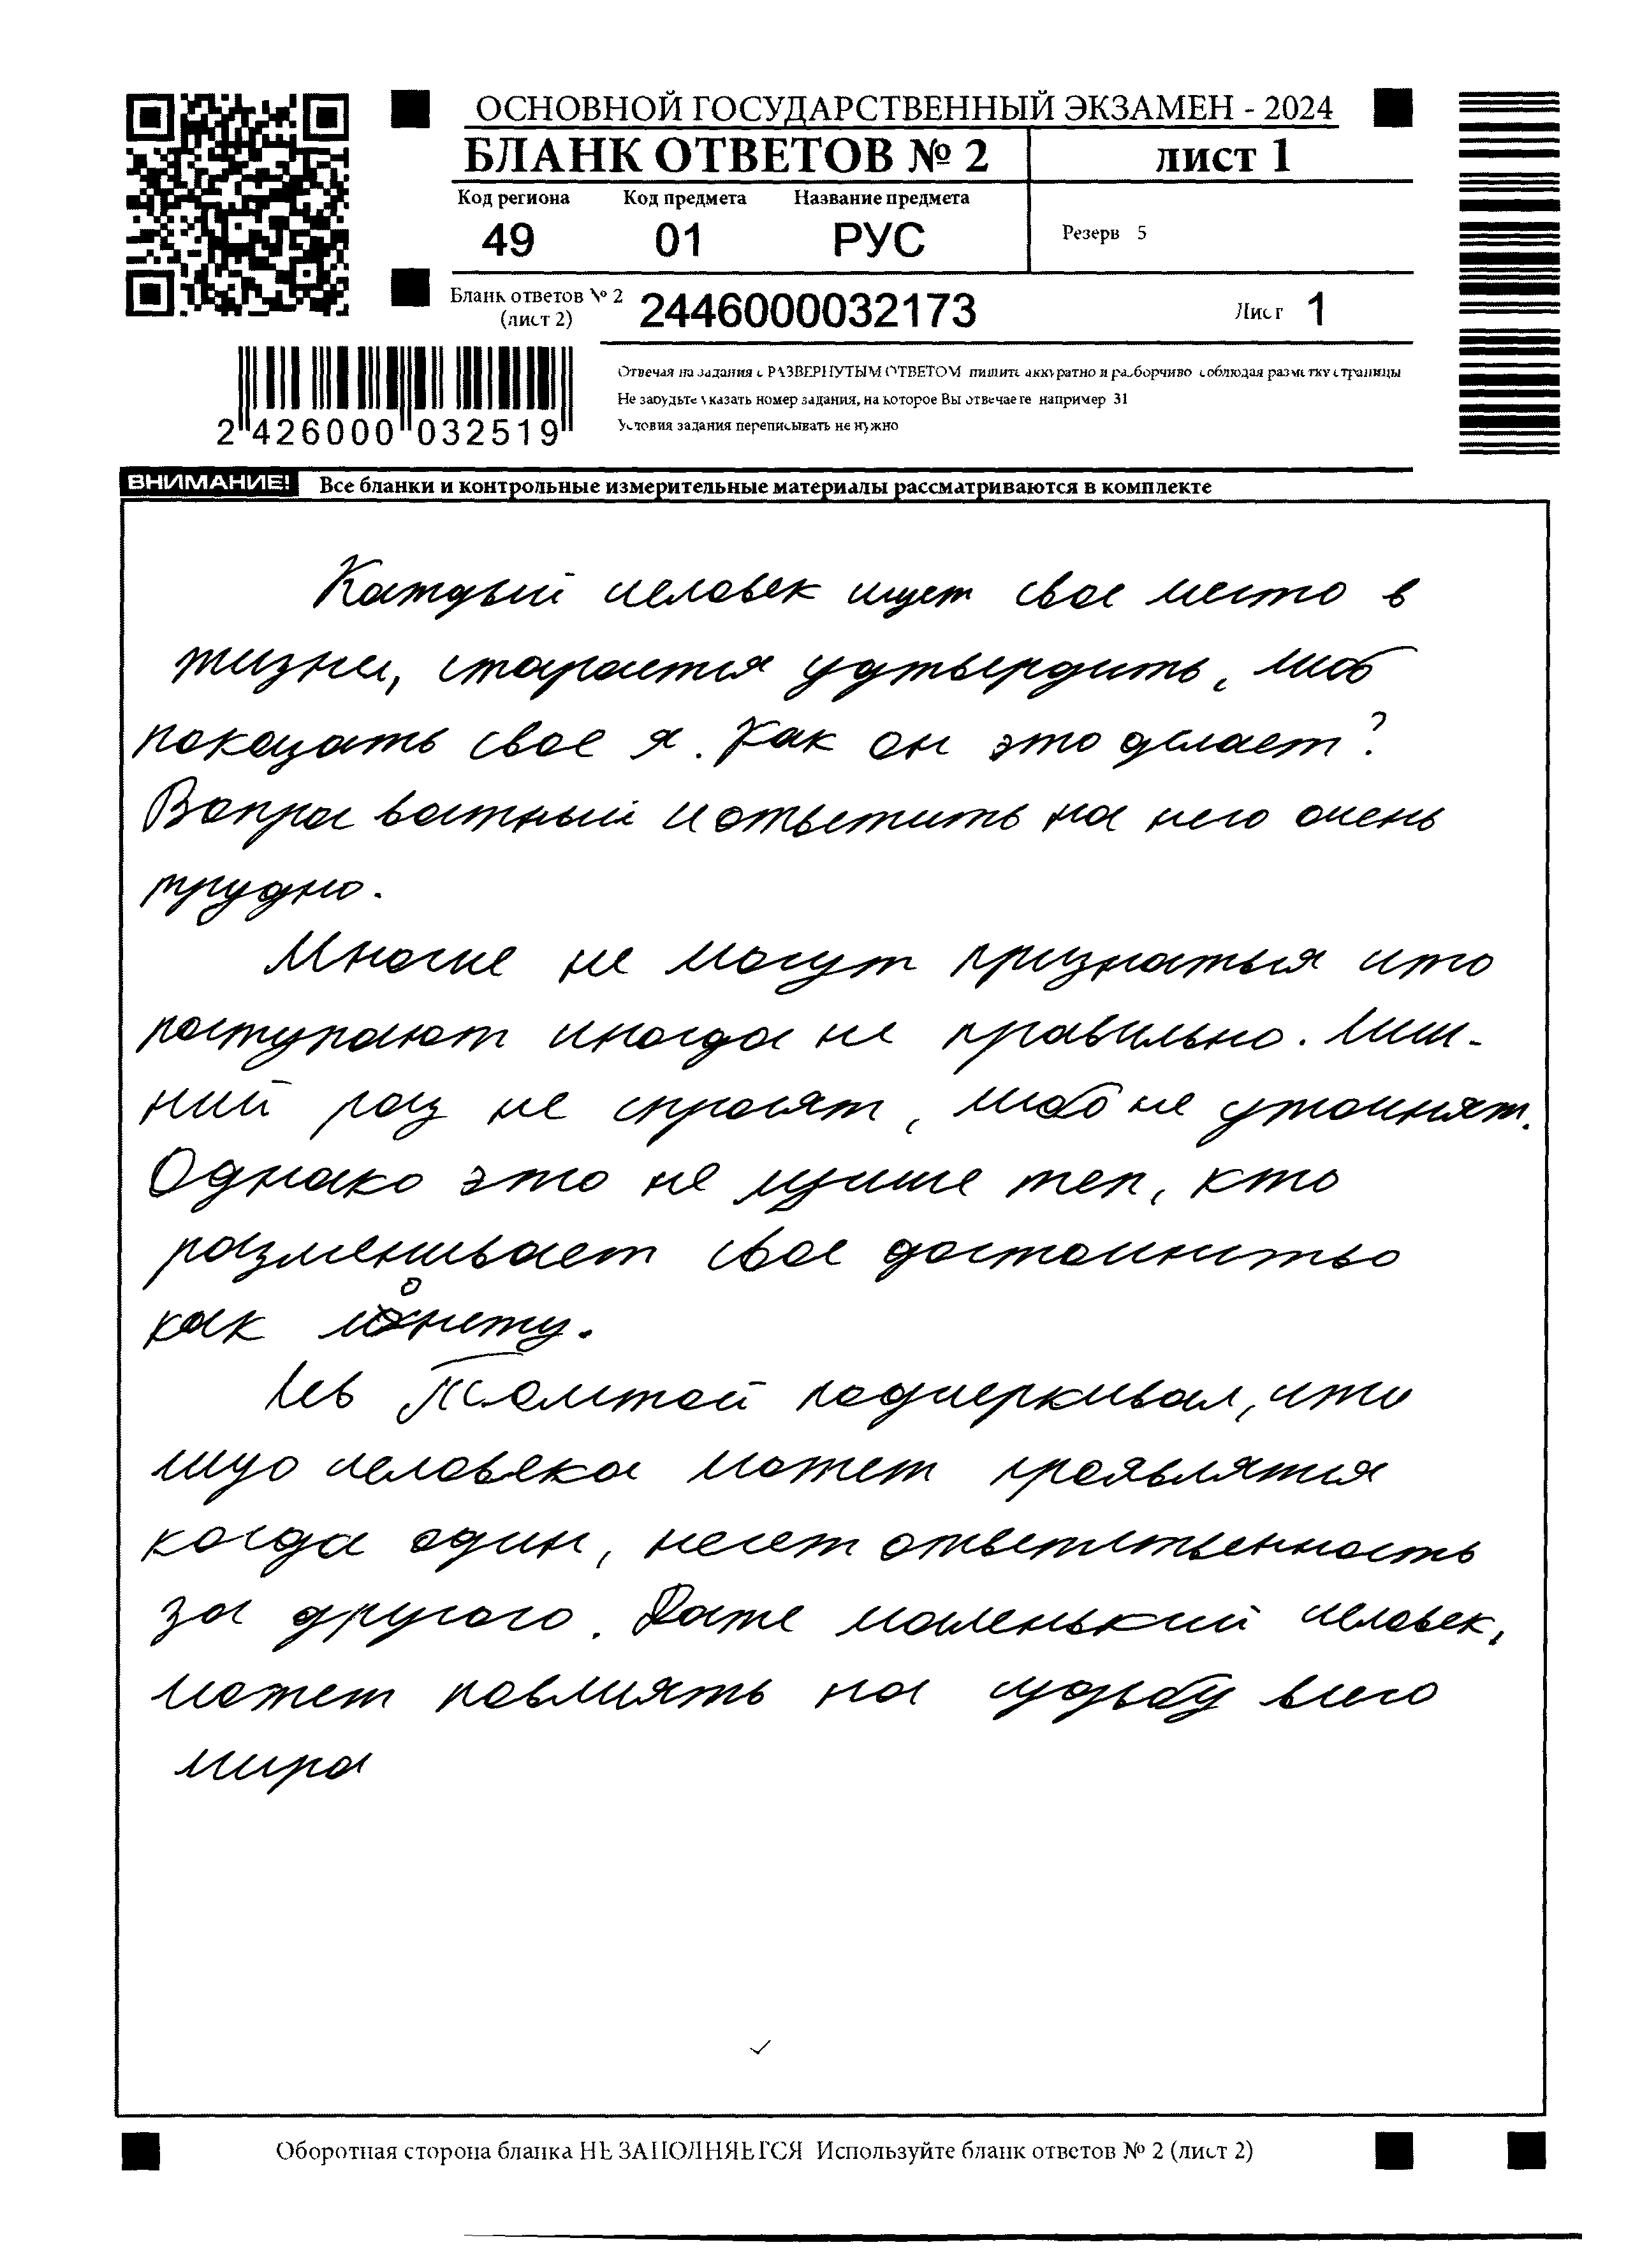 ОСНОВНОЙ ГОСУДАРСТВЕННЫЙ ЭКЗАМЕН - 2024
БЛАНК ОТВЕТОВ № 2 лист 1
Код региона Код предмета Название предмета
49 01 РУС
Резерв 5
Бланк ответов № 2
(лист 2)
2446000032173
Лист 1
2 426000 032519
Отвечая на задания с РАЗВЕРНУТЫМ ОТВЕТОМ пишите аккуратно и разборчиво соблюдая разметку страницы
Не забудьте указать номер задания, на которое Вы отвечаете например 31
Условия задания переписывать не нужно
ВНИМАНИЕ! Все бланки и контрольные измерительные материалы рассматриваются в комплекте
Каждый человек ищет свое место в
жизни, старается удтвердить, либо
показать свое я. Как он это делает?
Вопрос важный и ответить на него очень
трудно.
Многие не могут признаться что
поступают иногда не правильно. Лиш-
ний раз не спросят, либо не уточнят.
Однако это не лучше тех, кто
разменивает свое достоинство
как монету.
Лев Толстой подчеркивал, что
лицо человека может проявлятся
когда один, несет ответственность
за другого. Даже маленький человек,
может повлиять на судьбу всего
мира
Оборотная сторона бланка НЕ ЗАПОЛНЯЕТСЯ Используйте бланк ответов № 2 (лист 2)